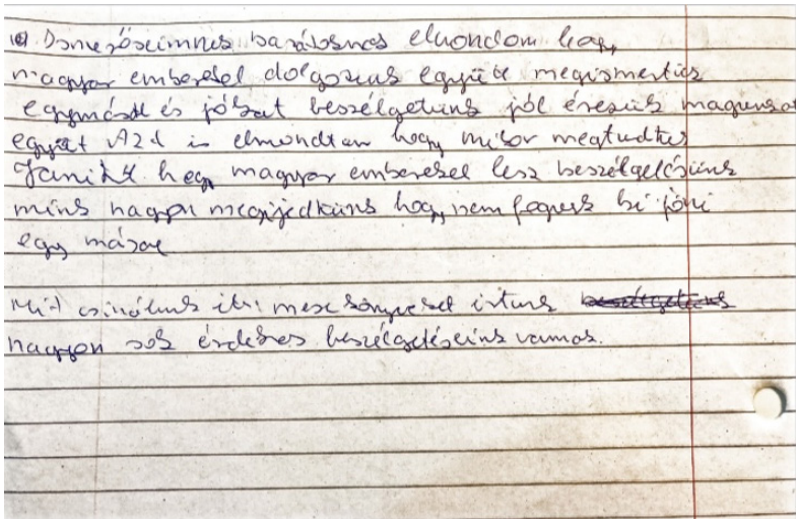 Ismerőseimnek barátoknak elmondom hogy
magyar emberekel dolgozunk együtt megismertük
egymást és jókat beszélgetünk jól érezük magunkat
együt Azt is elmondtam hogy mikor megtudtuk
hogy magyar emberekel lesz beszélgetésünk
mink nagyon megijedtünk hogy nem fogunk ki jöni
egy másal
Mit csinálunk itt: mese könyvekel irtunk beszélgetünk
nagyon sok érdekes beszélgetéseink vannak.